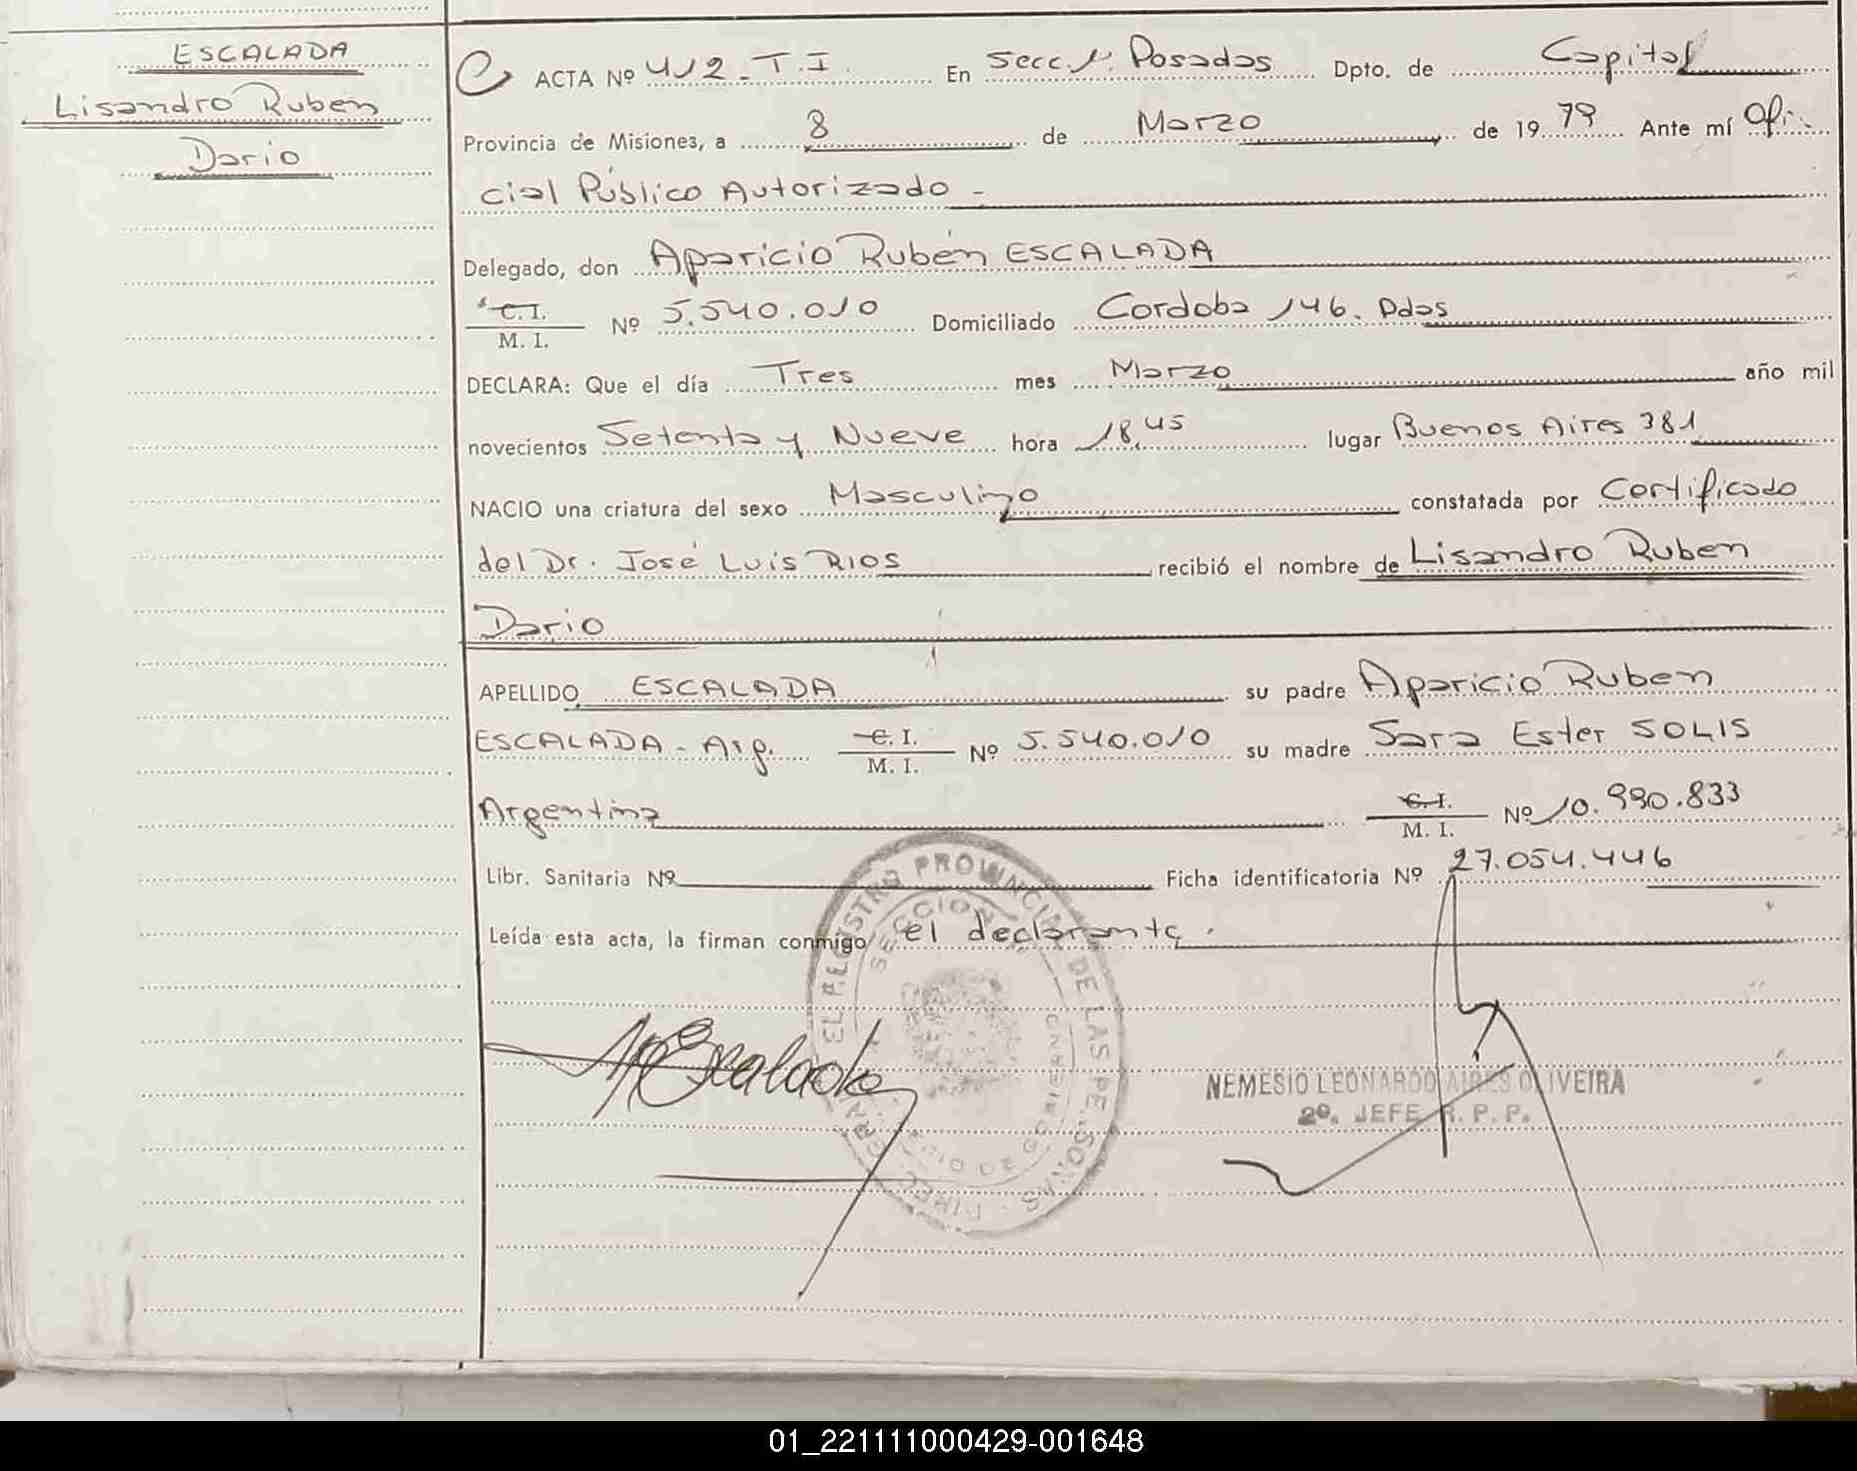 ESCALADA
Lisandro Ruben
Dario
ACTA Nº 412 - T.I. En Secc. 1ª. Posadas Dpto. de Capital
Provincia de Misiones, a 8 de Marzo de 1979 Ante mí Ofi-
cial Público Autorizado -
Delegado, don Aparicio Rubén ESCALADA
C. I.
M. I. Nº 5.540.010 Domiciliado Cordoba 146. Pdas
DECLARA: Que el día Tres mes Marzo año mil
novecientos Setenta y Nueve hora 18,45 lugar Buenos Aires 381
NACIO una criatura del sexo Masculino constatada por Certificado
del Dr. José Luis RIOS recibió el nombre de Lisandro Ruben
Dario
APELLIDO ESCALADA su padre Aparicio Ruben
ESCALADA - Arg. C. I.
M. I. Nº 5.540.010 su madre Sara Ester SOLIS
Argentina C. I.
M. I. Nº 10.990.833
Libr. Sanitaria Nº Ficha identificatoria Nº 27.054.446
Leída esta acta, la firman conmigo el declarante.
Escalada
NEMESIO LEONARDO AIRES OLIVEIRA
2º. JEFE R. P. P.
REGISTRO PROVINCIAL DE LAS PERSONAS
SECCION
GOBIERNO
01_221111000429-001648